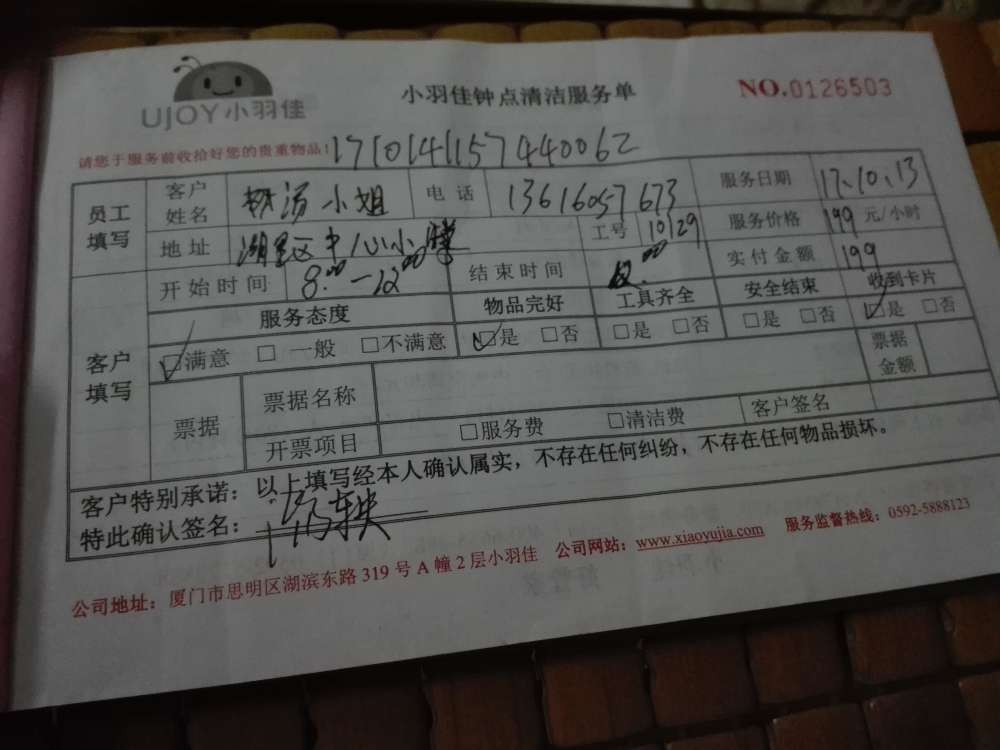 UjOY小羽佳
小羽佳钟点清洁服务单
NO.0126503
请您于服务前收拾好您的贵重物品!
1710141157440062
员工填写
客户姓名 汤小姐 电话 13616057673 服务日期 17.10.13
地址 湖里区中心小学 工号 10129 服务价格 199 元/小时
开始时间 8:00-12:00 结束时间 实付金额 199
客户填写
服务态度 物品完好 工具齐全 安全结束 收到卡片
☑满意 □一般 □不满意 ☑是 □否 □是 □否 □是 □否 ☑是 □否
票据 票据名称 票据金额
开票项目 □服务费 □清洁费 客户签名
客户特别承诺：以上填写经本人确认属实，不存在任何纠纷，不存在任何物品损坏。
特此确认签名：
公司地址：厦门市思明区湖滨东路 319 号 A 幢 2 层小羽佳 公司网站：www.xiaoyujia.com 服务监督热线：0592-5888123